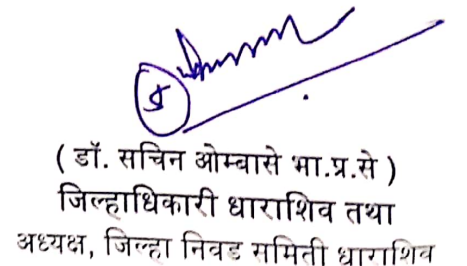 ( डॉ. सचिन ओम्बासे भा.प्र.से )
जिल्हाधिकारी धाराशिव तथा
अध्यक्ष, जिल्हा निवड समिती धाराशिव